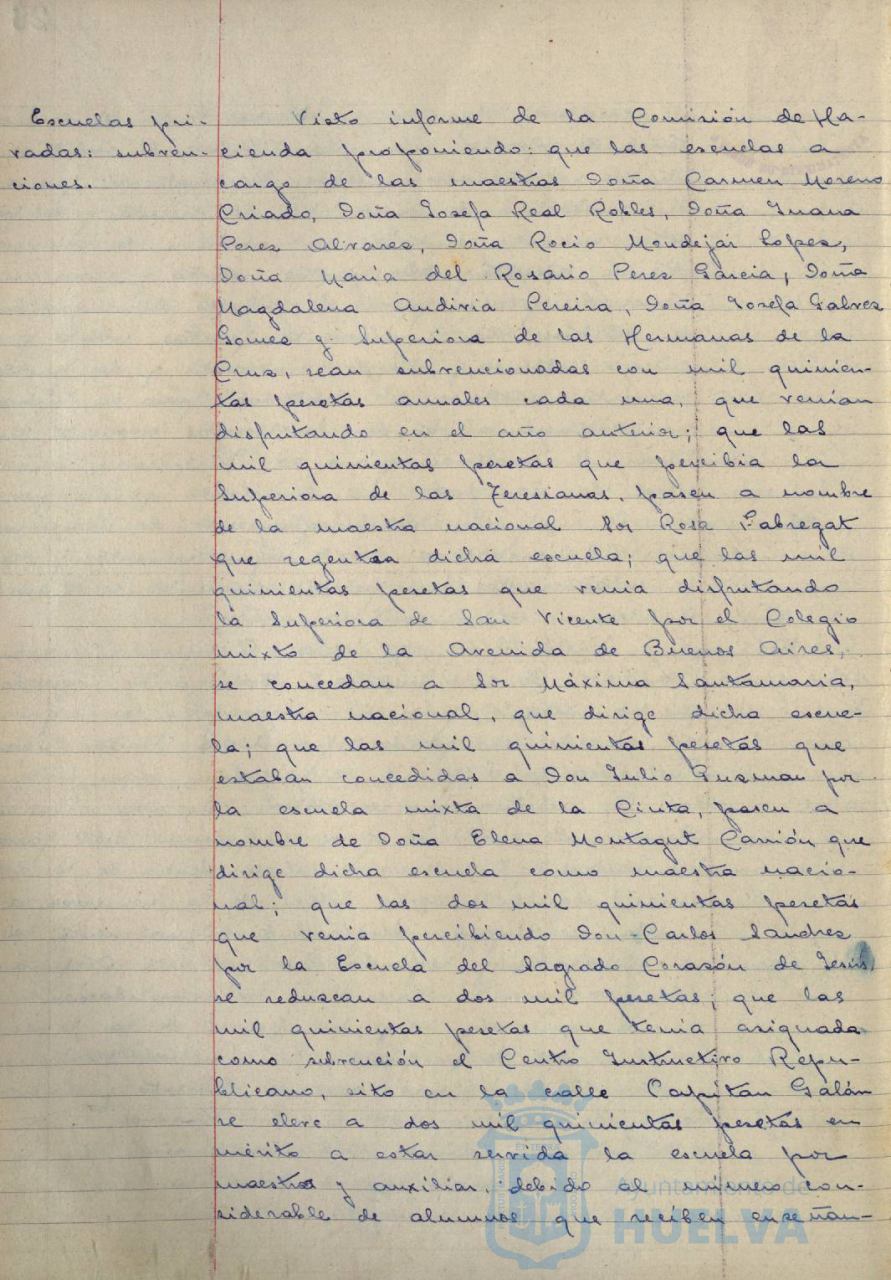 Escuelas pri-
vadas: subven-
ciones.
Visto informe de la Comisión de Ha-
cienda proponiendo: que las escuelas a
cargo de las maestras Doña Carmen Moreno
Criado, Doña Josefa Real Robles, Doña Juana
Perez Alvarez, Doña Rocio Mondejar Lopez,
Doña María del Rosario Perez Garcia, Doña
Magdalena Andivia Pereira, Doña Josefa Galvez
Gomez y Superiora de las Hermanas de la
Cruz, sean subvencionadas con mil quinien-
tas pesetas anuales cada una, que venian
disfrutando en el año anterior; que las
mil quinientas pesetas que percibia la
Superiora de las Teresianas, pasen a nombre
de la maestra nacional Sor Rosa Fabregat
que regenta dicha escuela; que las mil
quinientas pesetas que venia disfrutando
la Superiora de San Vicente por el Colegio
mixto de la Avenida de Buenos Aires,
se concedan a Sor Máxima Santamaria,
maestra nacional, que dirige dicha escue-
la; que las mil quinientas pesetas que
estaban concedidas a Don Julio Guzman por
la escuela mixta de la Cinta, pasen a
nombre de Doña Elena Montagut Carrión, que
dirige dicha escuela como maestra nacio-
nal; que las dos mil quinientas pesetas
que venia percibiendo Don Carlos Sanchez
por la Escuela del Sagrado Corazón de Jesús,
se reduzcan a dos mil pesetas; que las
mil quinientas pesetas que tenia asignada
como subvención el Centro Instructivo Repu-
blicano, sito en la calle Capitan Galán
se eleve a dos mil quinientas pesetas en
mérito a estar servida la escuela por
maestro y auxiliar, debido al número con-
siderable de alumnos que reciben enseñan-
Ayuntamiento de
HUELVA